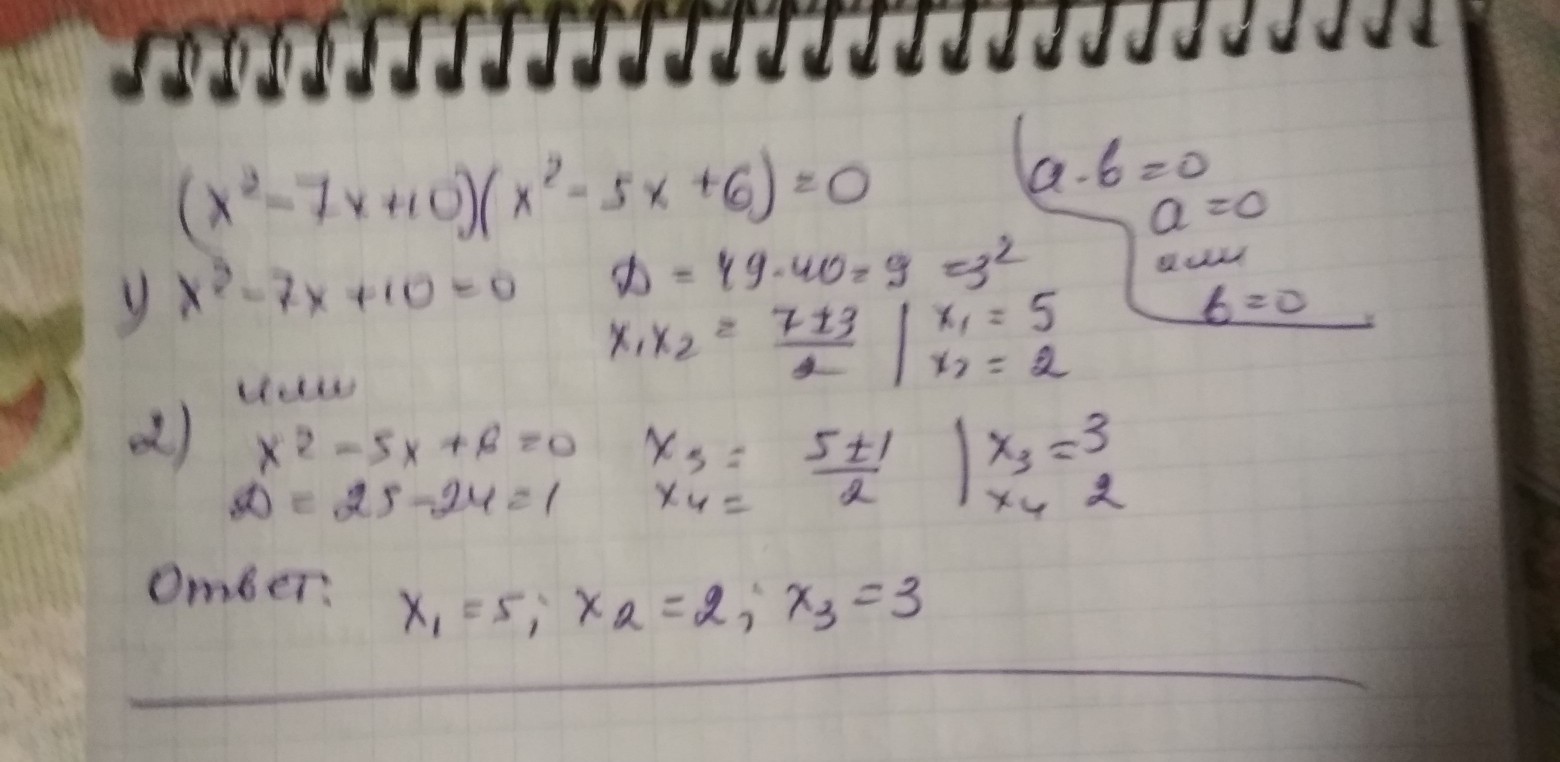 (x² - 7x + 10)(x² - 5x + 6) = 0
a · b = 0
a = 0
или
b = 0
1) x² - 7x + 10 = 0
D = 49 - 40 = 9 = 3²
x₁x₂ = (7 ± 3)/2 | x₁ = 5
x₂ = 2
или
2) x² - 5x + 6 = 0
D = 25 - 24 = 1
x₃ =
x₄ = (5 ± 1)/2 | x₃ = 3
x₄ 2
Ответ: x₁ = 5; x₂ = 2; x₃ = 3